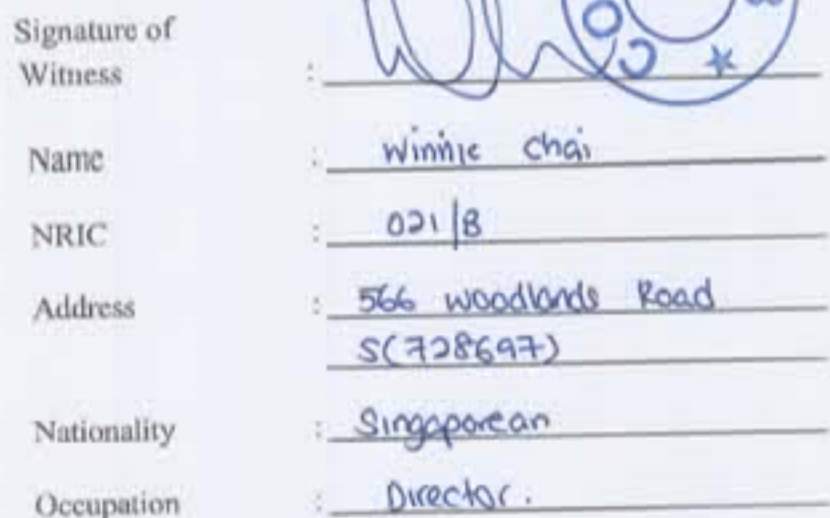 Signature of
Witness :
Name : Winnie Chai
NRIC : 021/B
Address : 566 Woodlands Road
S(728697)
Nationality : Singaporean
Occupation : Director.